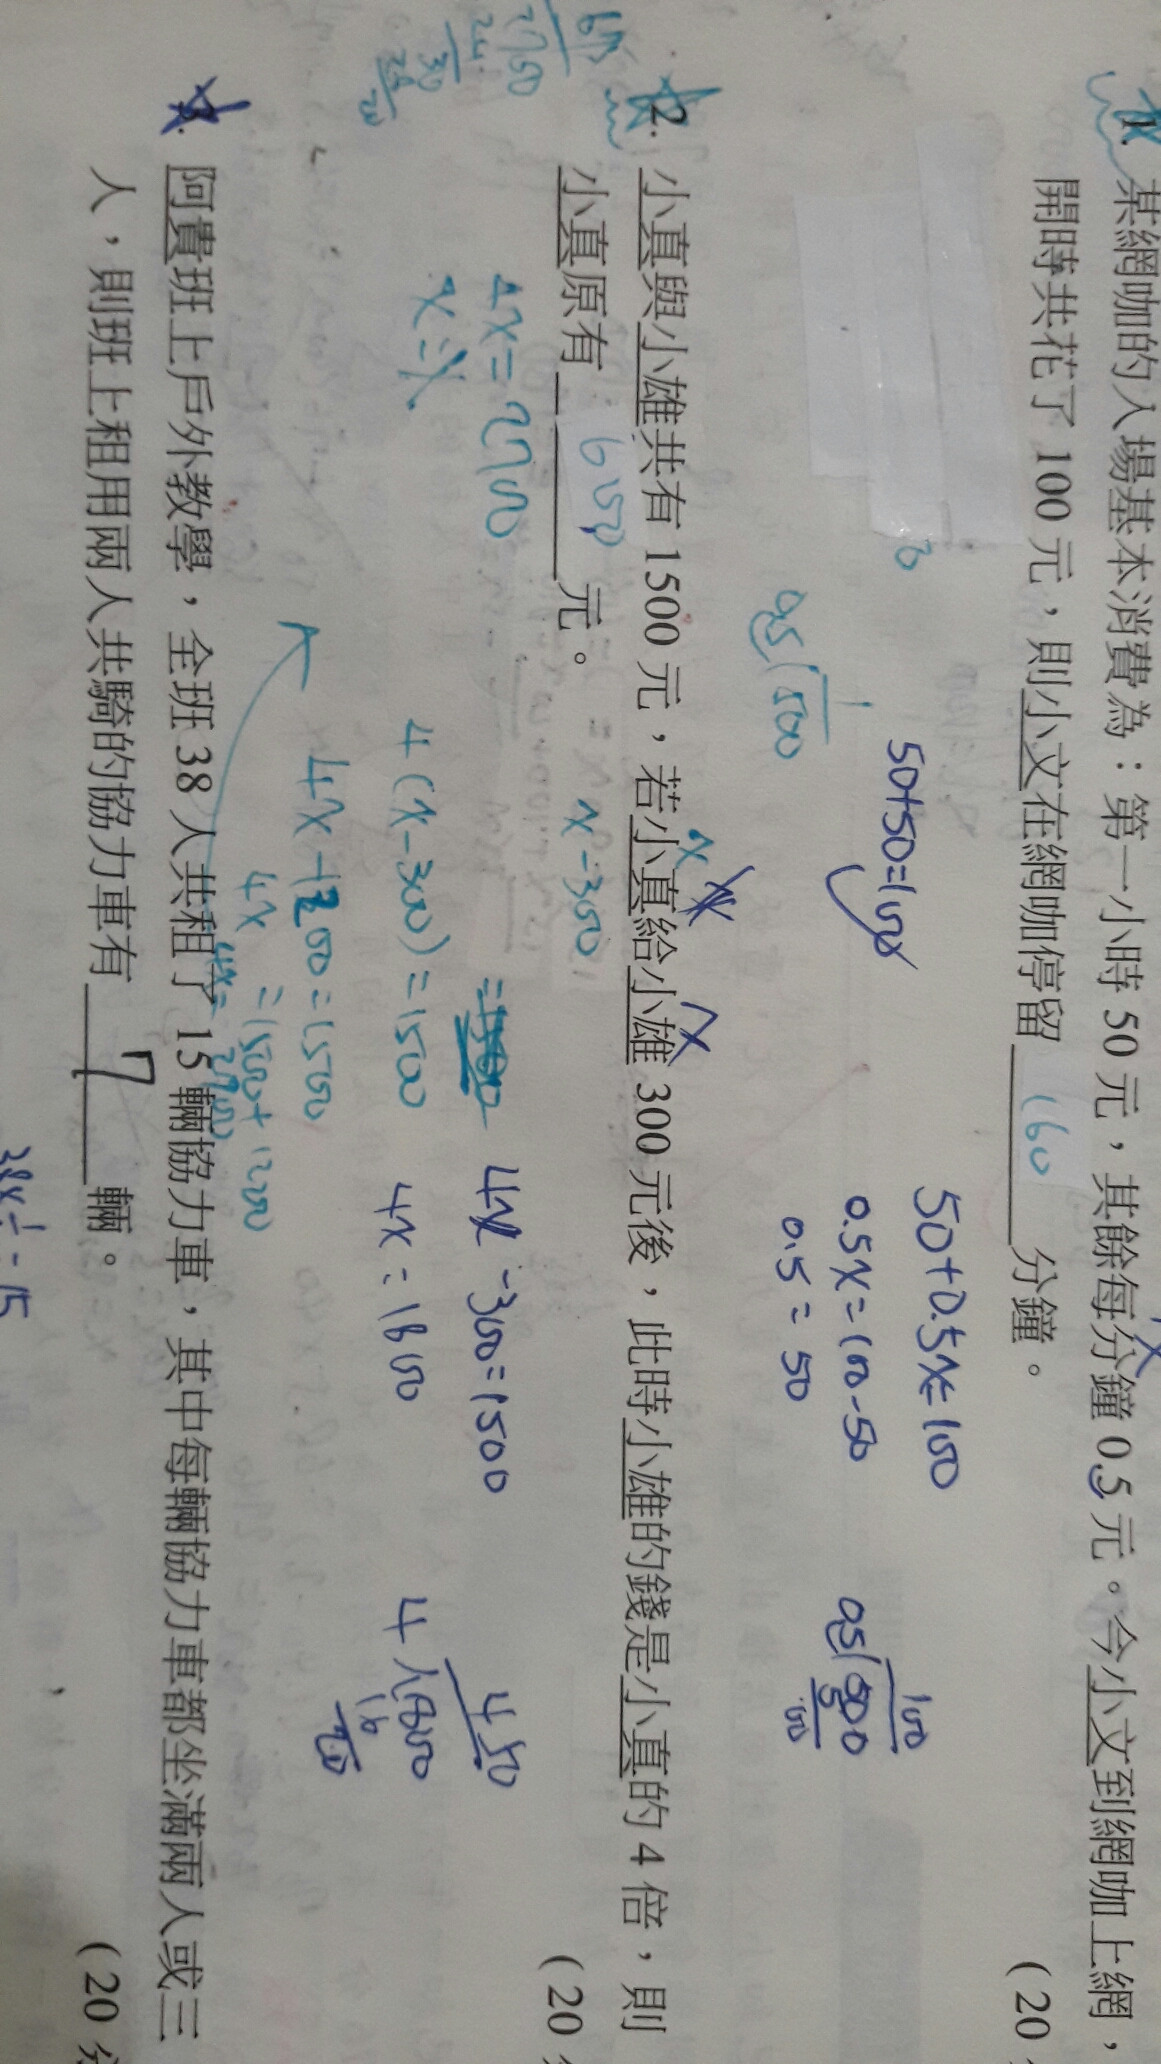 1. 某網咖的入場基本消費為：第一小時 50 元，其餘每分鐘 0.5 元。今小文到網咖上網，
開時共花了 100 元，則小文在網咖停留 160 分鐘。
(20
50+50=100
50+0.5x=100
0.5x=100-50
0.5=50
100
0.5 500
5
0.5 500
2. 小真與小雄共有 1500 元，若小真給小雄 300 元後，此時小雄的錢是小真的 4 倍，則
小真原有 650 元。
(20
x
x-300
4x=2700
x=
4(x-300)=1500
4x-1200=1500
4x =1500+1200
4x=2700
4x-300=1500
4x=1800
450
4 1800
16
20
675
2700
24
30
28
20
3. 阿貴班上戶外教學，全班 38 人共租了 15 輛協力車，其中每輛協力車都坐滿兩人或三
人，則班上租用兩人共騎的協力車有 7 輛。
(20 分